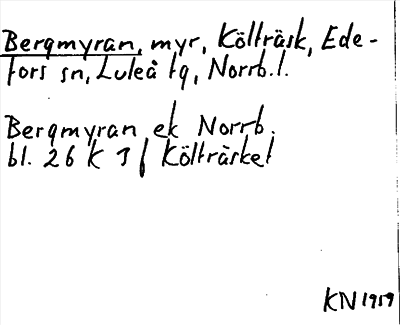 Bergmyran, myr, Költräsk, Ede-
fors sn, Luleå tg, Norrb.l.
Bergmyran ek Norrb.
bl. 26 K J f Költräsket
KN 1959